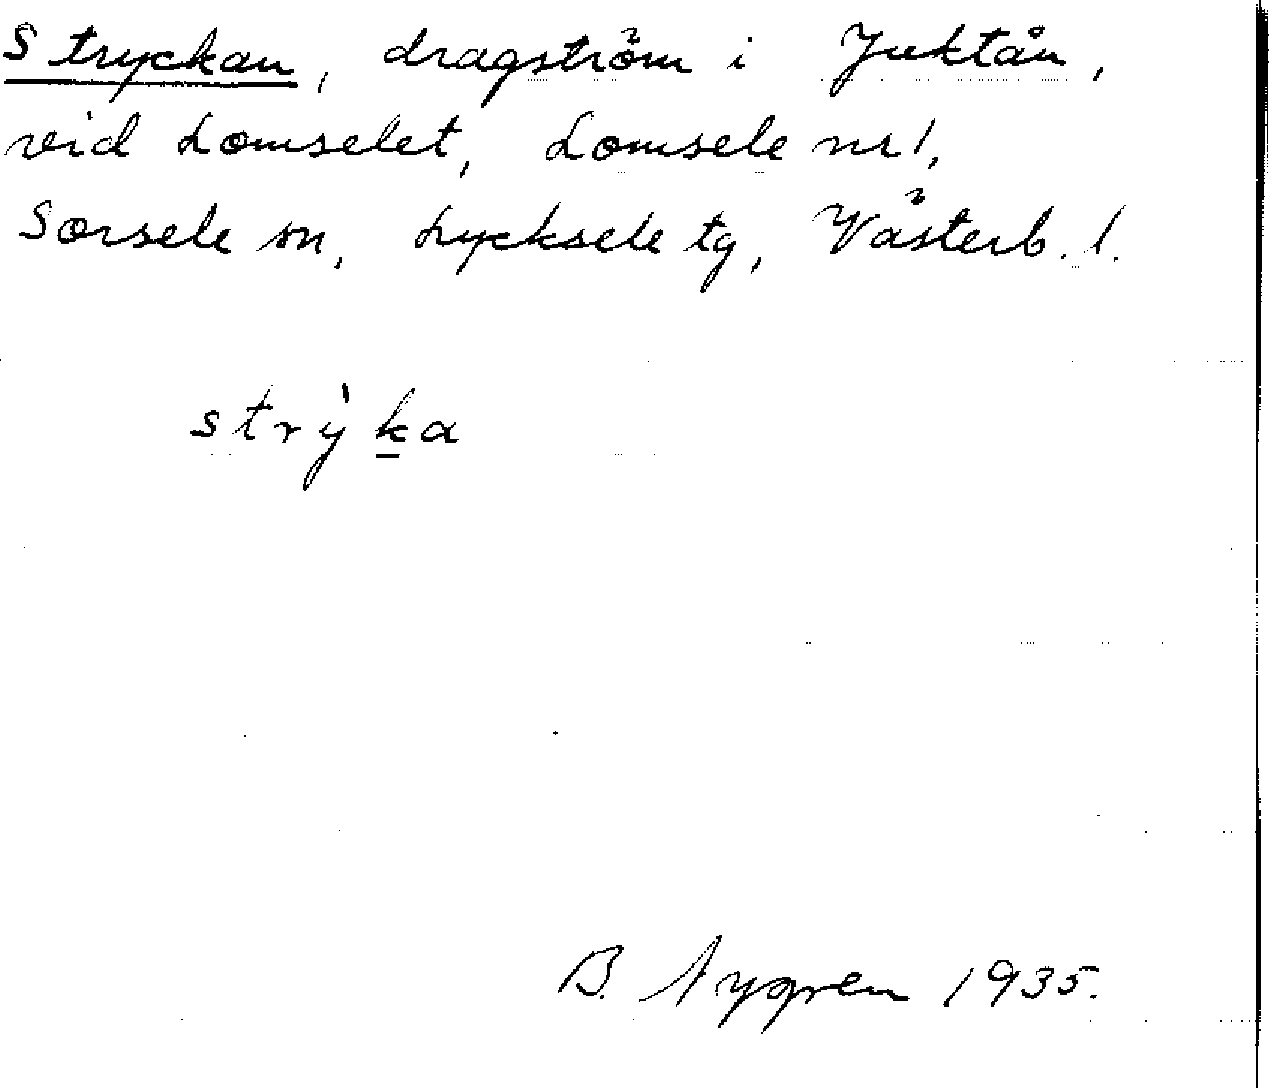 Stryckan, dragström i Juktån,
vid Lomselet, Lomsele nr 1,
Sorsele sn, Lycksele tg, Västerb. l.
strỳk̲a
B. Nygren 1935.